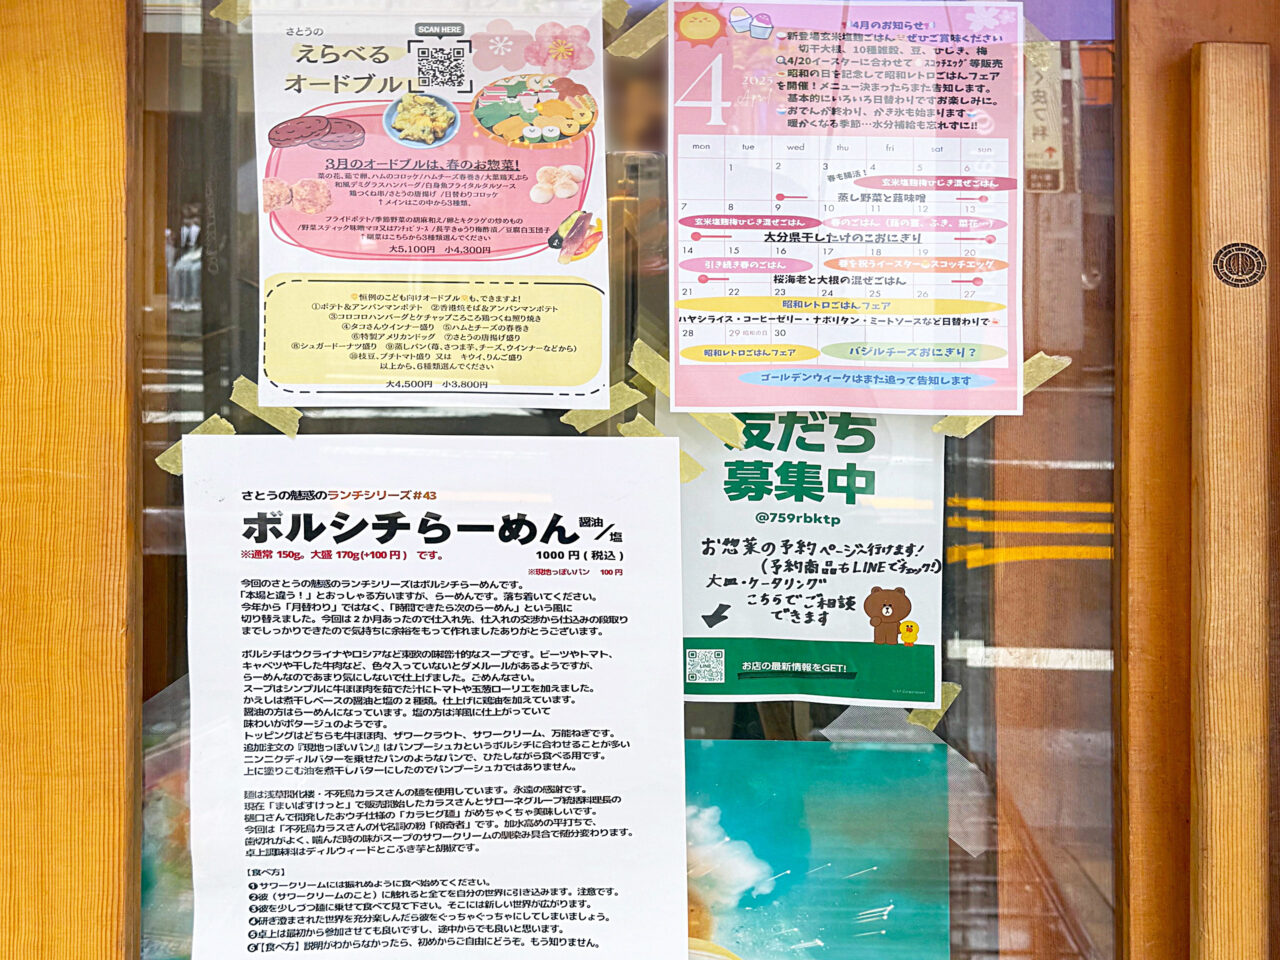 さとうの
えらべる
オードブル
SCAN HERE
3月のオードブルは、春のお惣菜!
菜の花、茹で卵、ハムのコロッケ/ハムチーズ春巻き/大葉鶏天ぷら
和風デミグラスハンバーグ/白身魚フライタルタルソース
鶏つくね串/さとうの唐揚げ /日替わりコロッケ
↑メインはこの中から3種類、
フライドポテト/季節野菜の胡麻和え/卵とキクラゲの炒めもの
/野菜スティック味噌マヨ又はアンチョビソース/長芋きゅうり梅酢漬/豆腐白玉団子
↑副菜はこちらから3種類選んでください
大5,100円 小4,300円
恒例のこども向けオードブル も、できますよ!
①ポテト&アンパンマンポテト ②香港焼そば&アンパンマンポテト
③コロコロハンバーグとケチャップころころ鶏つくね照り焼き
④タコさんウインナー盛り ⑤ハムとチーズの春巻き
⑥特製アメリカンドッグ ⑦さとうの唐揚げ盛り
⑧シュガードーナツ盛り ⑨蒸しパン(苺、さつま芋、チーズ、ウインナーなどから)
⑩枝豆、プチトマト盛り 又は キウイ、りんご盛り
以上から、6種類選んでください
大4,500円 小3,800円
4月のお知らせ
新登場玄米塩麹ごはん ぜひご賞味ください
切干大根、10種雑穀、豆、ひじき、梅
4/20イースターに合わせて スコッチエッグ等販売
昭和の日を記念して昭和レトロごはんフェア
を開催!メニュー決まったらまた告知します。
基本的にいろいろ日替わりですお楽しみに。
おでんが終わり、かき氷も始まります
暖かくなる季節…水分補給も忘れずに!!
4
2025
April
mon tue wed thu fri sat sun
1 2 3 4 5 6
春も腸活!
玄米塩麹梅ひじき混ぜごはん
蒸し野菜と蕗味噌
7 8 9 10 11 12 13
玄米塩麹梅ひじき混ぜごはん
春のごはん(筍の蕾、ふき、菜花…)
大分県干したけのこおにぎり
14 15 16 17 18 19 20
引き続き春のごはん
春を祝うイースター スコッチエッグ
桜海老と大根の混ぜごはん
21 22 23 24 25 26 27
昭和レトロごはんフェア
ハヤシライス・コーヒーゼリー・ナポリタン・ミートソースなど日替わりで
28 29 昭和の日 30
昭和レトロごはんフェア
バジルチーズおにぎり?
ゴールデンウイークはまた追って告知します
友だち
募集中
@759rbktp
お惣菜の予約ページへ行けます!
(予約商品もLINEでチェック!)
大皿・ケータリング
こちらでご相談
できます
LINE
お店の最新情報をGET!
さとうの魅惑のランチシリーズ#43
ボルシチらーめん 醤油/塩
※通常 150g。大盛 170g(+100 円) です。
1000 円 ( 税込 )
※現地っぽいパン 100 円
今回のさとうの魅惑のランチシリーズはボルシチらーめんです。
「本場と違う!」とおっしゃる方いますが、らーめんです。落ち着いてください。
今年から「月替わり」ではなく、「時間できたら次のらーめん」という風に
切り替えました。今回は 2 か月あったので仕入れ先、仕入れの交渉から仕込みの段取り
までしっかりできたので気持ちに余裕をもって作れましたありがとうございます。
ボルシチはウクライナやロシアなど東欧の味噌汁的なスープです。ビーツやトマト、
キャベツや干した牛肉など、色々入っていないとダメルールがあるようですが、
らーめんなのであまり気にしないで仕上げました。ごめんなさい。
スープはシンプルに牛ほほ肉を茹でた汁にトマトや玉葱ローリエを加えました。
かえしは煮干しベースの醤油と塩の 2 種類。仕上げに鶏油を加えています。
醤油の方はらーめんになっています。塩の方は洋風に仕上がっていて
味わいがポタージュのようです。
トッピングはどちらも牛ほほ肉、ザワークラウト、サワークリーム、万能ねぎです。
追加注文の『現地っぽいパン』はパンプーシュカというボルシチに合わせることが多い
ニンニクディルバターを乗せたパンのようなパンで、ひたしながら食べる用です。
上に塗りこむ油を煮干しバターにしたのでパンプーシュカではありません。
麺は浅草開化楼・不死鳥カラスさんの麺を使用しています。永遠の感謝です。
現在「まいばすけっと」で販売開始したカラスさんとサローネグループ統括料理長の
樋口さんで開発したおウチ仕様の「カラヒグ麺」がめちゃくちゃ美味しいです。
今回は「不死鳥カラスさんの代名詞の粉「傾奇者」です。加水高めの平打ちで、
歯切れがよく、噛んだ時の味がスープのサワークリームの馴染み具合で随分変わります。
卓上調味料はディルウィードとこぶき芋と胡椒です。
【食べ方】
❶サワークリームには振れぬように食べ始めてください。
❷彼(サワークリームのこと)に触れると全てを自分の世界に引き込みます。注意です。
❸彼を少しづつ麺に乗せて食べて見て下さい。そこには新しい世界が広がります。
❹研ぎ澄まされた世界を充分楽しんだら彼をぐっちゃぐっちゃにしてしまいましょう。
❺卓上は最初から参加させても良いですし、途中からでも良いと思います。
❻「【食べ方】説明がわからなかったら、初めからご自由にどうぞ。もう知りません。